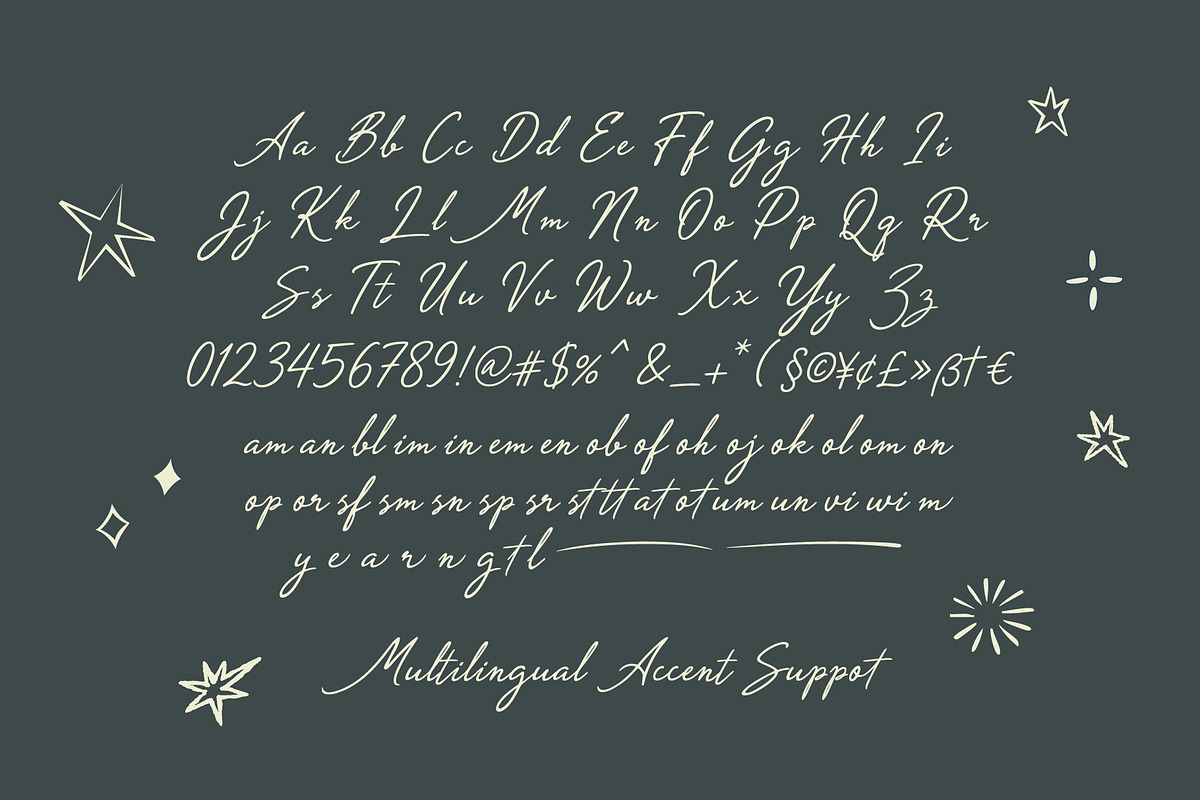 Aa Bb Cc Dd Ee Ff Gg Hh Ii
Jj Kk Ll Mm Nn Oo Pp Qq Rr
Ss Tt Uu Vv Ww Xx Yy Zz
0123456789!@#$%^&_+*(§©¥¢£»β†€
am an bl im in em en ob of oh oj ok ol om on
op or sf sm sn sp sr st tt at ot um un vi wi m
y e a r n g t l
Multilingual Accent Suppot